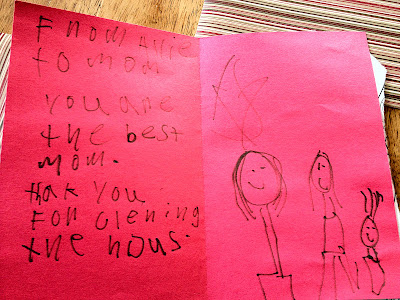 From Allie
to mom
you are
the best
mom.
thak you
For clening
the hous.